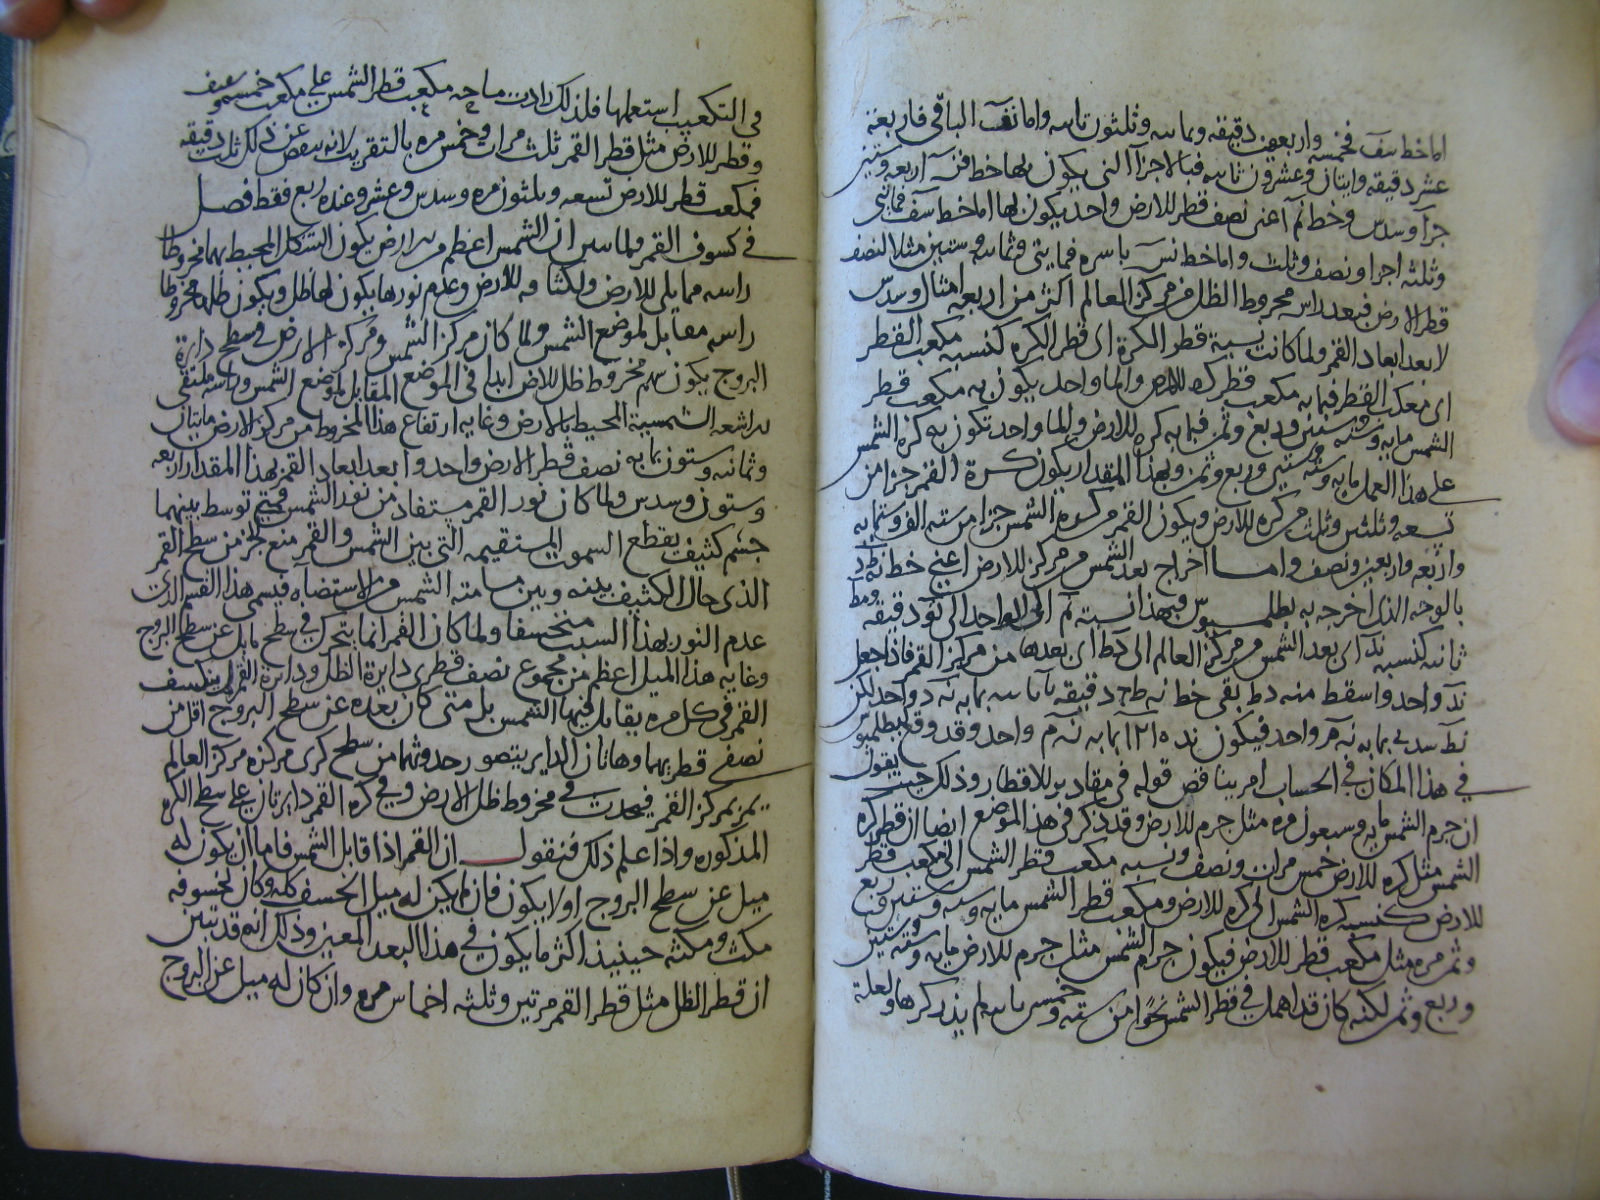 اما خط سف فخمسه واربعون دقيقه وثمانيه وثلثون ثانيه واما نف الباقى فاربعة
عشر دقيقه واثنتان وعشرون ثانيه فبالاجزآ التى يكون بها خط فن اربعه وستين
جزآ وسدس وخط نم اعنى نصف قطر للارض واحد يكون لها اما خط سف فمايتى
وثلثه اجزا ونصف وثلث واما خط نس باسره فمايتى وثمانيه وستين مثلا لنصف
قطر الارض فبعد راس مخروط الظل من مركز العالم اكثر من اربعه امثال وسدس
لابعد ابعاد القمر ولما كانت نسبة قطر الكرة اى قطر الكره كنسبه مكعب القطر
اى مكعب القطر فبما به مكعب قطر كره للارض والما واحد يكون به مكعب قطر
الشمس مايه وسته وستين وربع وثمن فبما به كره للارض والما واحد تكون به كره الشمس
على هذا العمل مايه وسته وستين وربع وثمن وبهذا المقدار يكون كرة القمر جزا من
تسعه وثلثين وثلث من كره للارض ويكون القمر من كره الشمس جزا من سته الف وستمايه
واربعه واربعين ونصف واما اخراج بعد الشمس من مركز للارض اعنى خط
بالوجه الذى اخرجه به بطلميوس فبهذا نسبة نم الى الواحد الى دقيقه
ثانيه كنسبه ند اى بعد الشمس من مركز العالم الى كط اى بعدها من مركز القمر فاذا جعل
ند واحد واسقط منه دط بقى خط نه دقيقه ثانيه بما به ند واحد لكن
نط سد ى بما به نه م واحد فيكون ند ١٢١٥ بما به نه م واحد وقد وقع لبطلميوس
في هذا المكان في الحساب امر يناقض قوله في مقادير للاقطار وذلك حيث يقول
ان جرم الشمس مايه وسبعون مره مثل جرم للارض وقد ذكر في هذا الموضع ايضا ان قطر كره
الشمس مثل كره للارض خمس مرات ونصف ونسبه مكعب قطر الشمس الى مكعب قطر
للارض كنسبه كره الشمس الى كره للارض ومكعب قطر الشمس مايه وسته وستين وربع
وثمن مره مثل مكعب قطر للارض فيكون جرم الشمس مثل جرم للارض مايه وسته وستين
وربع وثمن لكنه كان قد اهمل في قطر الشمس نحوا من سته وخمسين ثانيه لم يذكرها ولعلة
فى التكعيب استعملها فلذلك زادت مكعب قطر الشمس على مكعب خمسه ونصف
وقطر للارض مثل قطر القمر ثلث مرات وخمسى مره بالتقريب لانه ينقص عن ذلك ثلث دقيقه
فمكعب قطر للارض تسعه وثلثون مره وسدس وعشر وعنده ربع فقط فصل
في كسوف القمر ولما تبين ان الشمس اعظم من الارض يكون الشكل المحيط بهما مخروطا
راسه مما يلى للارض ولكثافه للارض وعدم نورها يكون لها ظل ويكون ظلها مخروطا
راسه مقابل لموضع الشمس ولما كان مركز الشمس ومركز الارض في سطح دايرة
البروج يكون سهم مخروط ظل للارض ابدا فى الموضع المقابل لموضع الشمس وراسه ملتقى
الاشعه الشمسية المحيط بالارض وغايه ارتفاع هذا المخروط من مركز الارض مايتان
وثمانيه وستون بما به نصف قطر الارض واحد وابعد ابعاد القمر بهذا المقدار اربعه
وستون وسدس ولما كان نور القمر مستفاد من نور الشمس فمتى توسط بينهما
جسم كثيف يقطع السموت المستقيمه التى بين الشمس والقمر منع الجزء من سطح القمر
الذى حال الكثيف بينه وبين مسامته الشمس من الاستضآه فيسمى هذا القسم الذى
عدم النور بهذا السبب منخسفا ولما كان القمر انما يتحرك في سطح مايل عن سطح البروج
وغايه هذا الميل اعظم من مجموع نصف قطرى دايرة الظل ودايرة القمر لم ينكسف
القمر فى كل مره يقابل فيها الشمس بل متى كان بعده عن سطح البروج اقل من
نصفى قطريهما وهاتان الدايرتان يتصور حدوثهما من سطح كرى مركزه مركز العالم
يمر بمركز القمر فيحدث في مخروط ظل الارض وفي كره القمر دايرتان على سطح الكره
المذكوره واذا علم ذلك فنقول ان القمر اذا قابل الشمس فاما ان يكون له
ميل عن سطح البروج او لا يكون فان لم يكن له ميل انخسف كله وكان لخسوفه
مكث ومكثه حينيذ اكثر ما يكون في هذا البعد المعين وذلك انه قد تبين
ان قطر الظل مثل قطر القمر مرتين وثلثه اخماس مره وان كان له ميل عن البروج